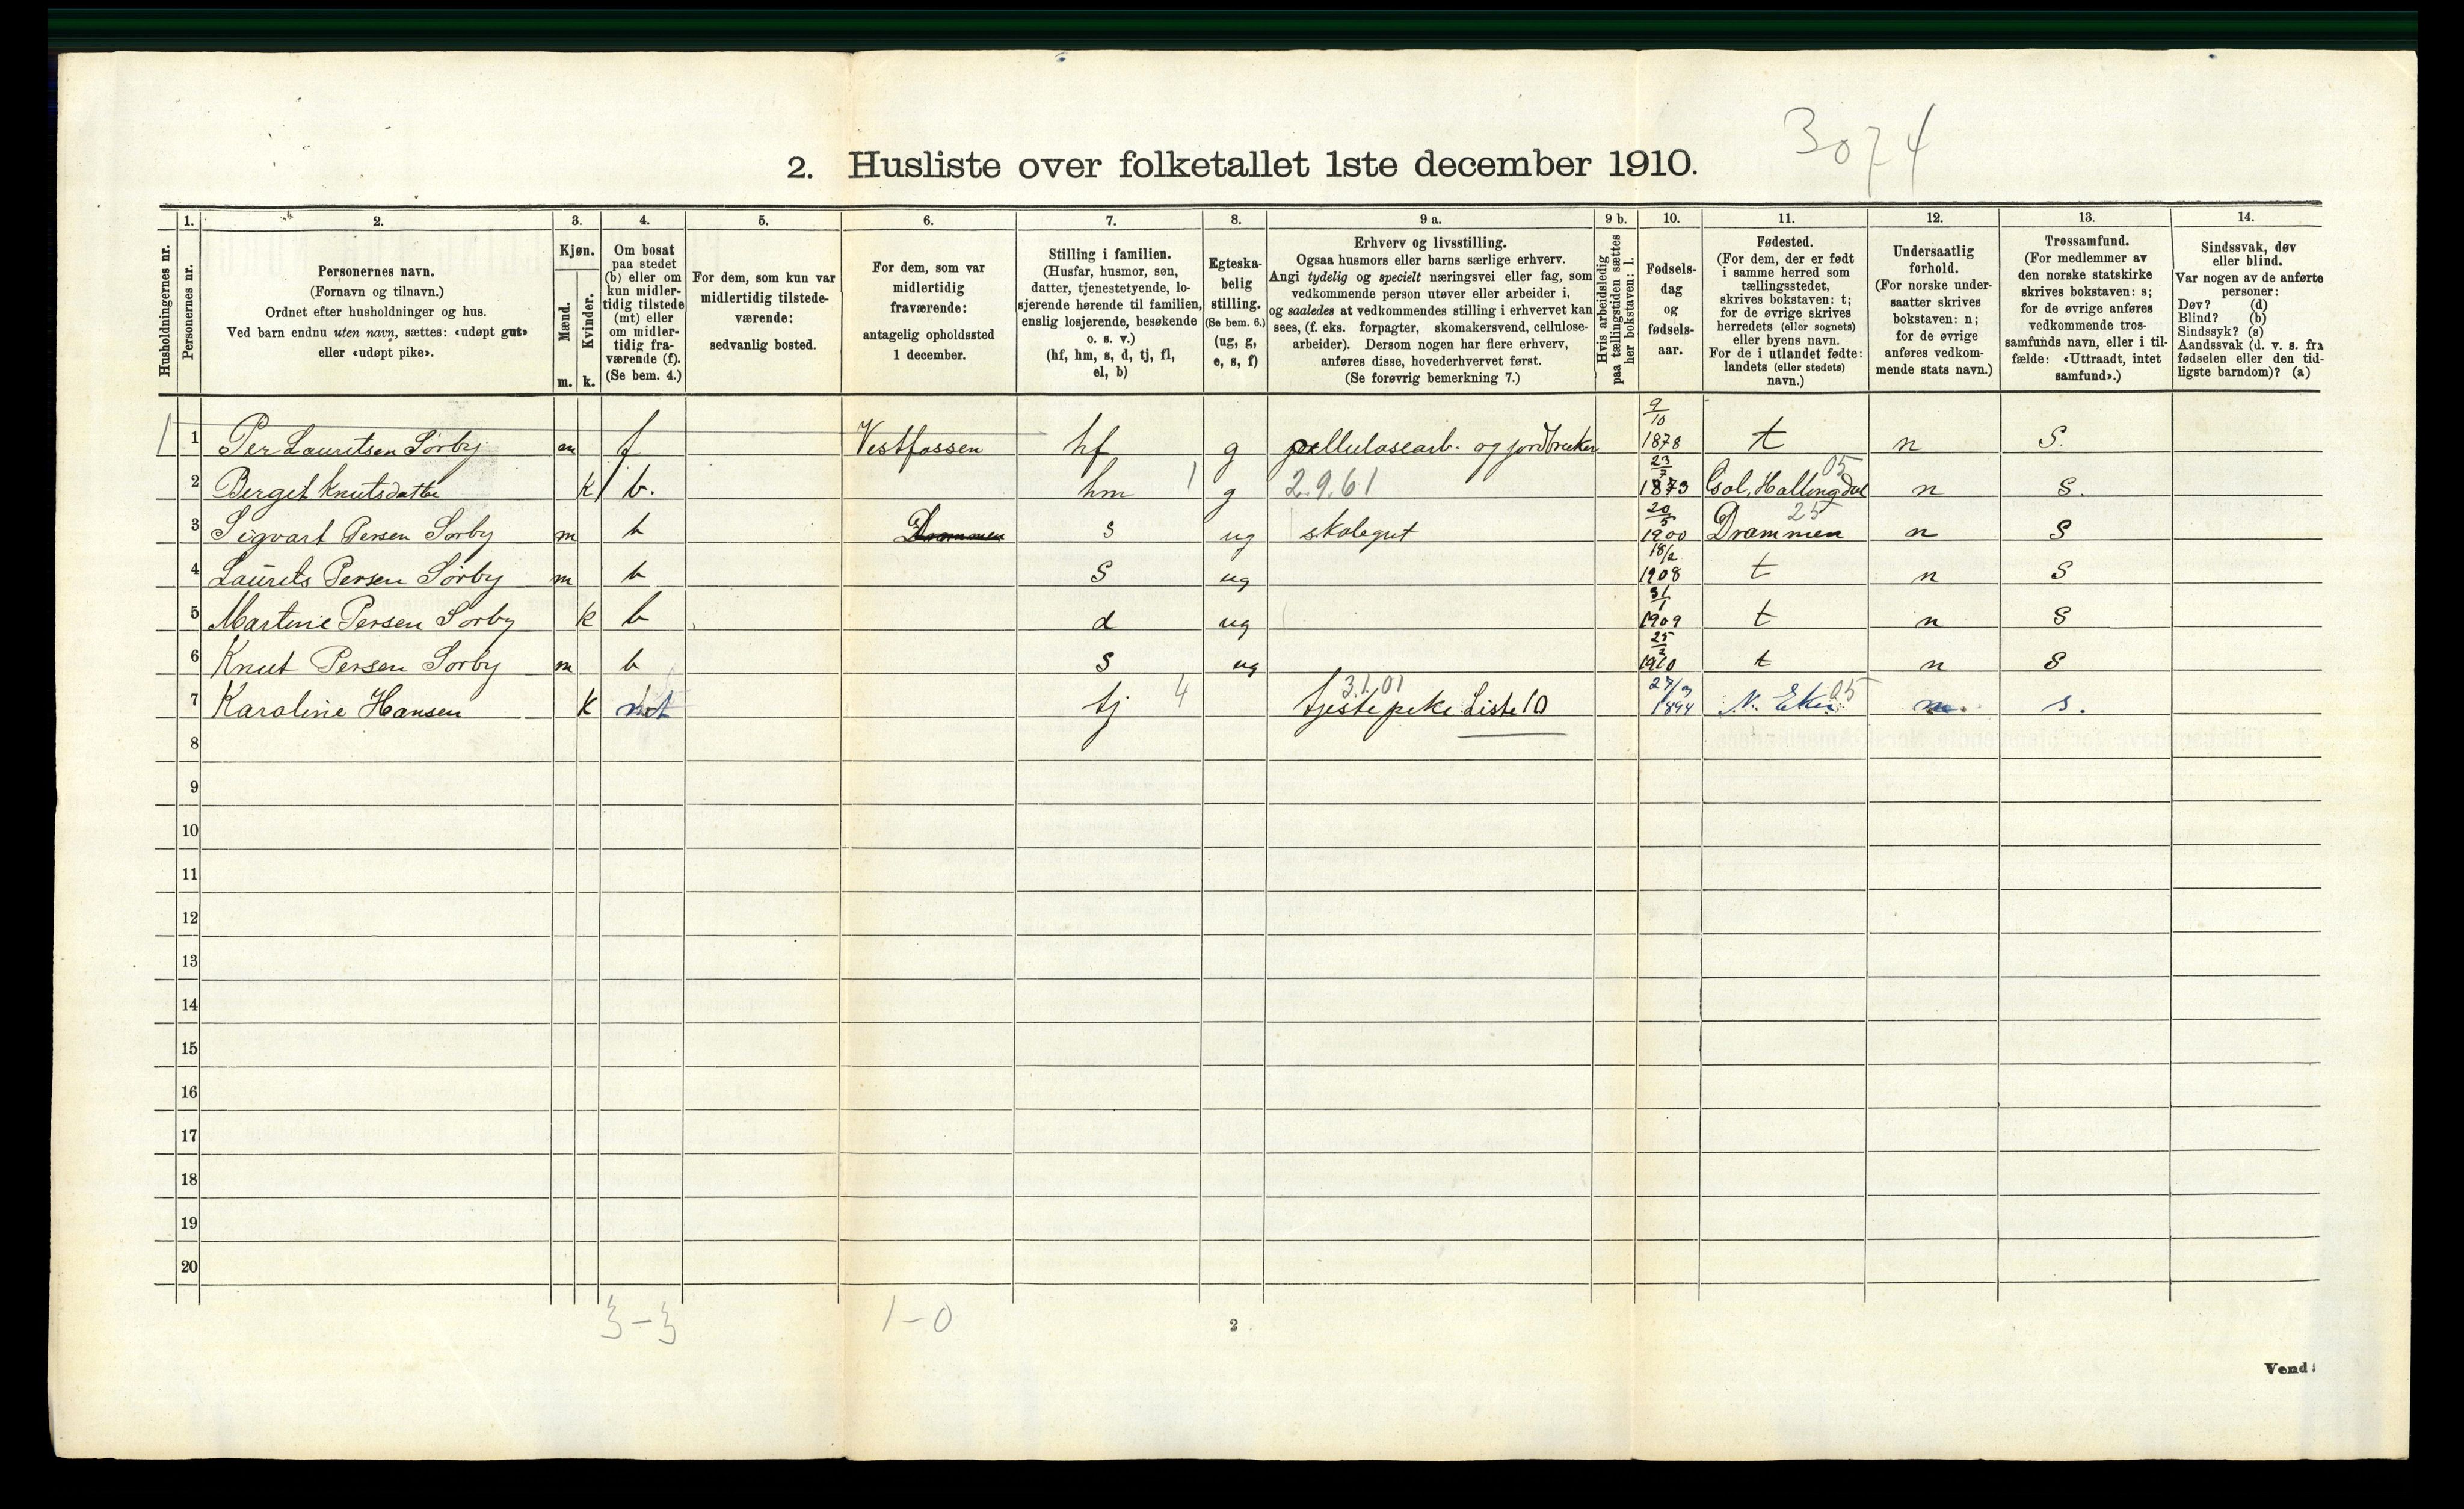 3074
2. Husliste over folketallet 1ste december 1910.
1. 2. 3. 4. 5. 6. 7. 8. 9 a. 9 b. 10. 11. 12. 13. 14.
Husholdningernes nr.
Personernes nr.
Personernes navn.
(Fornavn og tilnavn.)
Ordnet efter husholdninger og hus.
Ved barn endnu uten navn, sættes: «udøpt gut»
eller «udøpt pike».
Kjøn.
Mænd.
Kvinder.
m. k.
Om bosat
paa stedet
(b) eller om
kun midler-
tidig tilstede
(mt) eller
om midler-
tidig fra-
værende (f).
(Se bem. 4.)
For dem, som kun var
midlertidig tilstede-
værende:
sedvanlig bosted.
For dem, som var
midlertidig
fraværende:
antagelig opholdssted
1 december.
Stilling i familien.
(Husfar, husmor, søn,
datter, tjenestetyende, lo-
sjerende hørende til familien,
enslig losjerende, besøkende
o. s. v.)
(hf, hm, s, d, tj, fl,
el, b)
Egteska-
belig
stilling.
(Se bem. 6.)
(ug, g,
e, s, f)
Erhverv og livsstilling.
Ogsaa husmors eller barns særlige erhverv.
Angi tydelig og specielt næringsvei eller fag, som
vedkommende person utøver eller arbeider i,
og saaledes at vedkommendes stilling i erhvervet kan
sees, (f. eks. forpagter, skomakersvend, cellulose-
arbeider). Dersom nogen har flere erhverv,
anføres disse, hovederhvervet først.
(Se forøvrig bemerkning 7.)
Hvis arbeidsledig
paa tællingstiden sættes
her bokstaven: l.
Fødsels-
dag
og
fødsels-
aar.
Fødested.
(For dem, der er født
i samme herred som
tællingsstedet,
skrives bokstaven: t;
for de øvrige skrives
herredets (eller sognets)
eller byens navn.
For de i utlandet fødte:
landets (eller stedets)
navn.)
Undersaatlig
forhold.
(For norske under-
saatter skrives
bokstaven: n;
for de øvrige
anføres vedkom-
mende stats navn.)
Trossamfund.
(For medlemmer av
den norske statskirke
skrives bokstaven: s;
for de øvrige anføres
vedkommende tros-
samfunds navn, eller i til-
fælde: «Uttraadt, intet
samfund».)
Sindssvak, døv
eller blind.
Var nogen av de anførte
personer:
Døv? (d)
Blind? (b)
Sindssyk? (s)
Aandssvak (d. v. s. fra
fødselen eller den tid-
ligste barndom)? (a)
1 1 Per Lauritsen Sørby m f Vestfossen hf g cellulosearb. og jordbruker 9/10 1878 t n S.
2 Berget Knutsdatter k b. hm 1 g 2.9.61 23/7 1873 Gol, Hallingdal 05 n S.
3 Sigvart Persen Sørby m b Drammen s ug skolegut 20/5 1900 Drammen 25 n S
4 Laurits Persen Sørby m b S ug 18/2 1908 t n S
5 Martine Persen Sørby k b d ug 31/1 1909 t n S
6 Knut Persen Sørby m b S ug 25/2 1910 t n S
7 Karoline Hansen k mt tj 4 3.1.01 tjeste peke Liste 10 27/3 1894 N. Eker 05 n. s.
8
9
10
11
12
13
14
15
16
17
18
19
20
3-3 1-0
2
Vend!